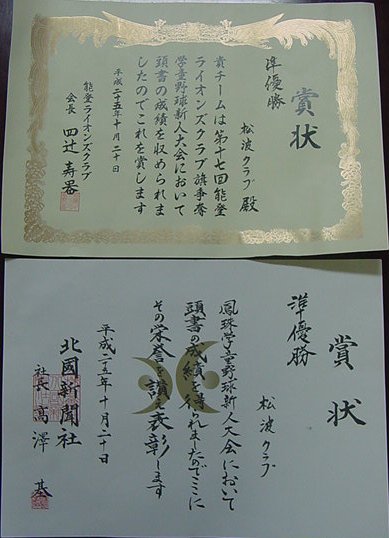 賞状
準優勝
松波クラブ 殿
貴チームは第十七回能登
ライオンズクラブ旗争奪
学童野球新人大会において
頭書の成績を収められま
したのでこれを賞します
平成二十五年十月二十日
能登ライオンズクラブ
会長 四辻寿
賞状
準優勝
松波クラブ
鳳珠学童野球新人大会において
頭書の成績を得られましたのでここに
その栄誉を讃え表彰します
平成二五年十月二十日
北國新聞社
社長 高澤 基